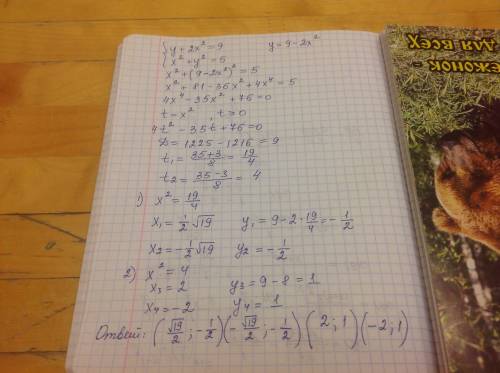 {y + 2x² = 9        y = 9 - 2x²
{x² + y² = 5
x² + (9 - 2x²)² = 5
x² + 81 - 36x² + 4x⁴ = 5
4x⁴ - 35x² + 76 = 0
t = x², t ≥ 0
4t² - 35t + 76 = 0
D = 1225 - 1216 = 9
t₁ = (35+3)/8 = 19/4
t₂ = (35-3)/8 = 4
1) x² = 19/4
x₁ = 1/2 √19    y₁ = 9 - 2·19/4 = -1/2
x₂ = -1/2 √19    y₂ = -1/2
2) x² = 4
x₃ = 2    y₃ = 9 - 8 = 1
x₄ = -2    y₄ = 1
Ответ: (√19/2 ; -1/2) (-√19/2 ; -1/2) (2; 1) (-2; 1)
ДЛЯ ВСЕХ